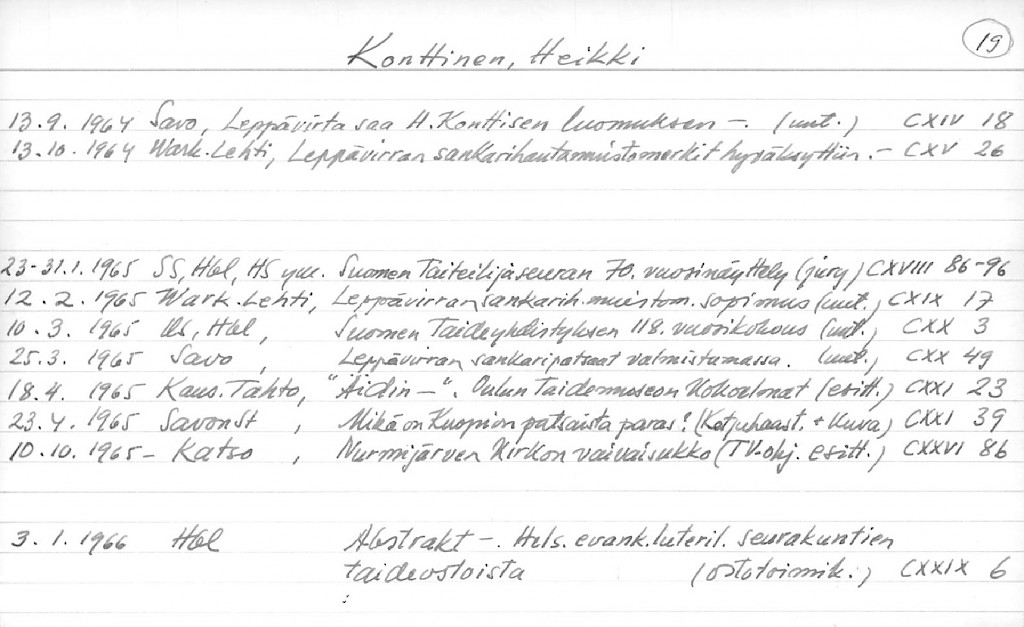 19
Konttinen, Heikki
13.9. 1964 Savo, Leppävirta saa H. Konttisen luomuksen -. (uut.) CXIV 18
13.10. 1964 Wark. Lehti, Leppävirran sankarihautamuistomerkit hyväksyttiin. - CXV 26
23-31.1. 1965 SS, Hbl, HS ym. Suomen Taiteilijaseuran 70. vuosinäyttely (jury) CXVIII 86-96
12. 2. 1965 Wark. Lehti, Leppävirran sankarih. muistom. sopimus (uut.) CXIX 17
10. 3. 1965 US, Hbl, Suomen Taideyhdistyksen 118. vuosikokous (uut.) CXX 3
25.3. 1965 Savo, Leppävirran sankaripatsaat valmistumassa. (uut.) CXX 49
18.4. 1965 Kans. Tahto, "Äidin -". Oulun Taidemuseon kokoelmat (esitt.) CXXI 23
23.4. 1965 SavonSt, Mikä on Kuopion patsaista paras? (Ketjuhaast. + kuva) CXXI 39
10.10. 1965 - Katso, Nurmijärven kirkon vaivaisukko (TV-ohj. esitt.) CXXVI 86
3. 1. 1966 Hbl Abstrakt -. Hels. evank. luteril. seurakuntien
taideostoista (ostotoimik.) CXXIX 6